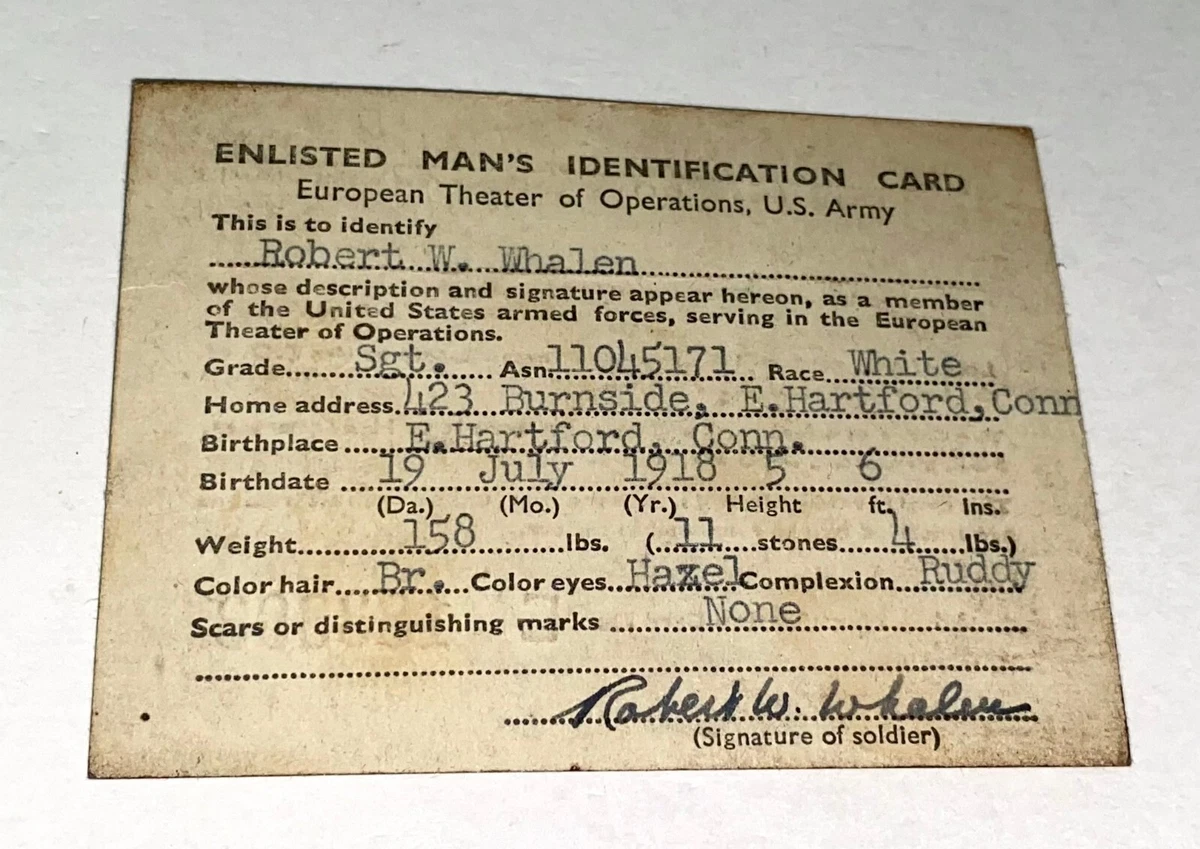 ENLISTED MAN'S IDENTIFICATION CARD
European Theater of Operations, U.S. Army
This is to identify
Robert W. Whalen
whose description and signature appear hereon, as a member
of the United States armed forces, serving in the European
Theater of Operations.
Grade......Sgt....... Asn.11045171... Race...White
Home address.423 Burnside, E.Hartford,Conn
Birthplace.....E.Hartford, Conn.
Birthdate ....19 July 1918 5 6
(Da.) (Mo.) (Yr.) Height ft. Ins.
Weight..........158..........lbs. (...11....stones.....4.....lbs.)
Color hair....Br....Color eyes..Hazel Complexion..Ruddy
Scars or distinguishing marks ........None
Robert W. Whalen
(Signature of soldier)